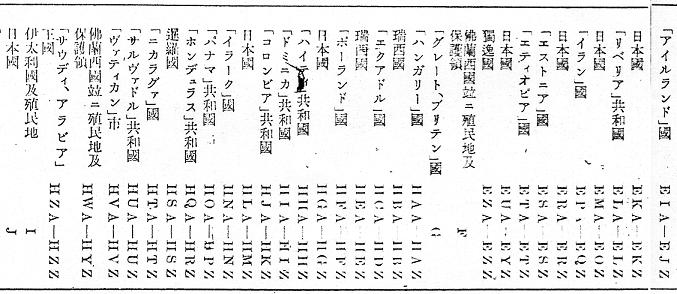 「アイルランド」國 EIA—EJZ
日本國 EKA—EKZ
「リベリア」共和國 ELA—ELZ
日本國 EMA—EOZ
「イラン」國 EPA—EQZ
日本國 ERA—ERZ
「エストニア」國 ESA—ESZ
「エティオピア」國 ETA—ETZ
日本國 EUA—EYZ
獨逸國 EZA—EZZ
佛蘭西國竝ニ殖民地及保護領 F
「グレート、ブリテン」國 G
「ハンガリー」國 HAA—HAZ
瑞西國 HBA—HBZ
「エクアドル」國 HCA—HDZ
瑞西國 HEA—HEZ
「ポーランド」國 HFA—HFZ
日本國 HGA—HGZ
「ハイティ」共和國 HHA—HHZ
「ドミニカ」共和國 HIA—HIZ
「コロンビア」共和國 HJA—HKZ
日本國 HLA—HMZ
「イラーク」國 HNA—HNZ
「パナマ」共和國 HOA—HPZ
「ホンデュラス」共和國 HQA—HRZ
暹羅國 HSA—HSZ
「ニカラグァ」國 HTA—HTZ
「サルヴァドル」共和國 HUA—HUZ
「ヴァティカン」市 HVA—HVZ
佛蘭西國竝ニ殖民地及保護領 HWA—HYZ
「サウディ、アラビア」王國 HZA—HZZ
伊太利國及殖民地 I
日本國 J